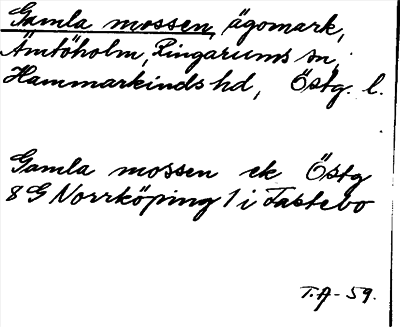 Gamla mossen, ägomark,
Ämtöholm, Ringarums sn,
Hammarkinds hd, Östg. l.
Gamla mossen ek Östg
8G Norrköping 1 i Fastebo
T.A-59.